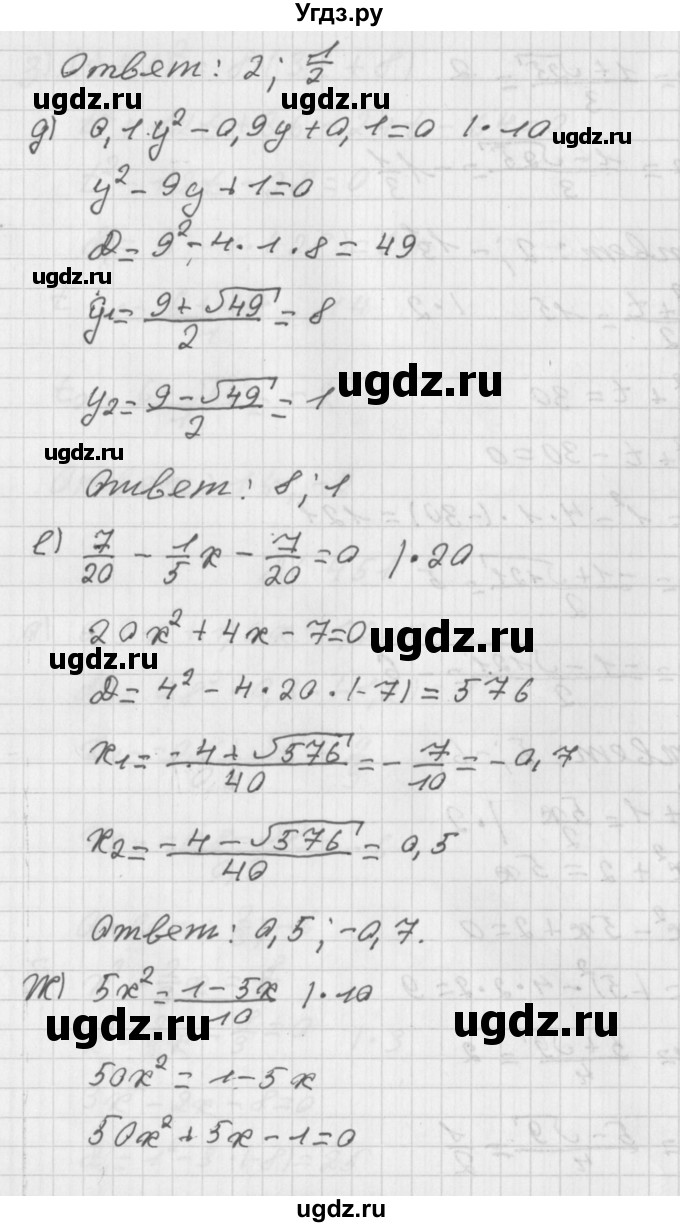 Угдз.ру
Ответ: 2; 1/2
ugdz.ru ugdz.ru
д) 0,1y² - 0,9y + 0,1 = 0 |·10
ugdz.ru
y² - 9y + 1 = 0
D = 9² - 4·1·8 = 49
ugdz.ru
y₁ = (9 + √49)/2 = 8
ugdz.ru
y₂ = (9 - √49)/2 = 1
ugdz.ru
Ответ: 8; 1
е) 7/20 - 1/5x - 7/20 = 0 |·20
20x² + 4x - 7 = 0
ugdz.ru
ugdz.ru
D = 4² - 4·20·(-7) = 576
x₁ = (-4 + √576)/40 = -7/10 = -0,7
x₂ = (-4 - √576)/40 = 0,5
Ответ: 0,5; -0,7.
ж) 5x² = (1 - 5x)/10 |·10
ugdz.ru ugdz.ru
50x² = 1 - 5x
50x² + 5x - 1 = 0
ugdz.ru